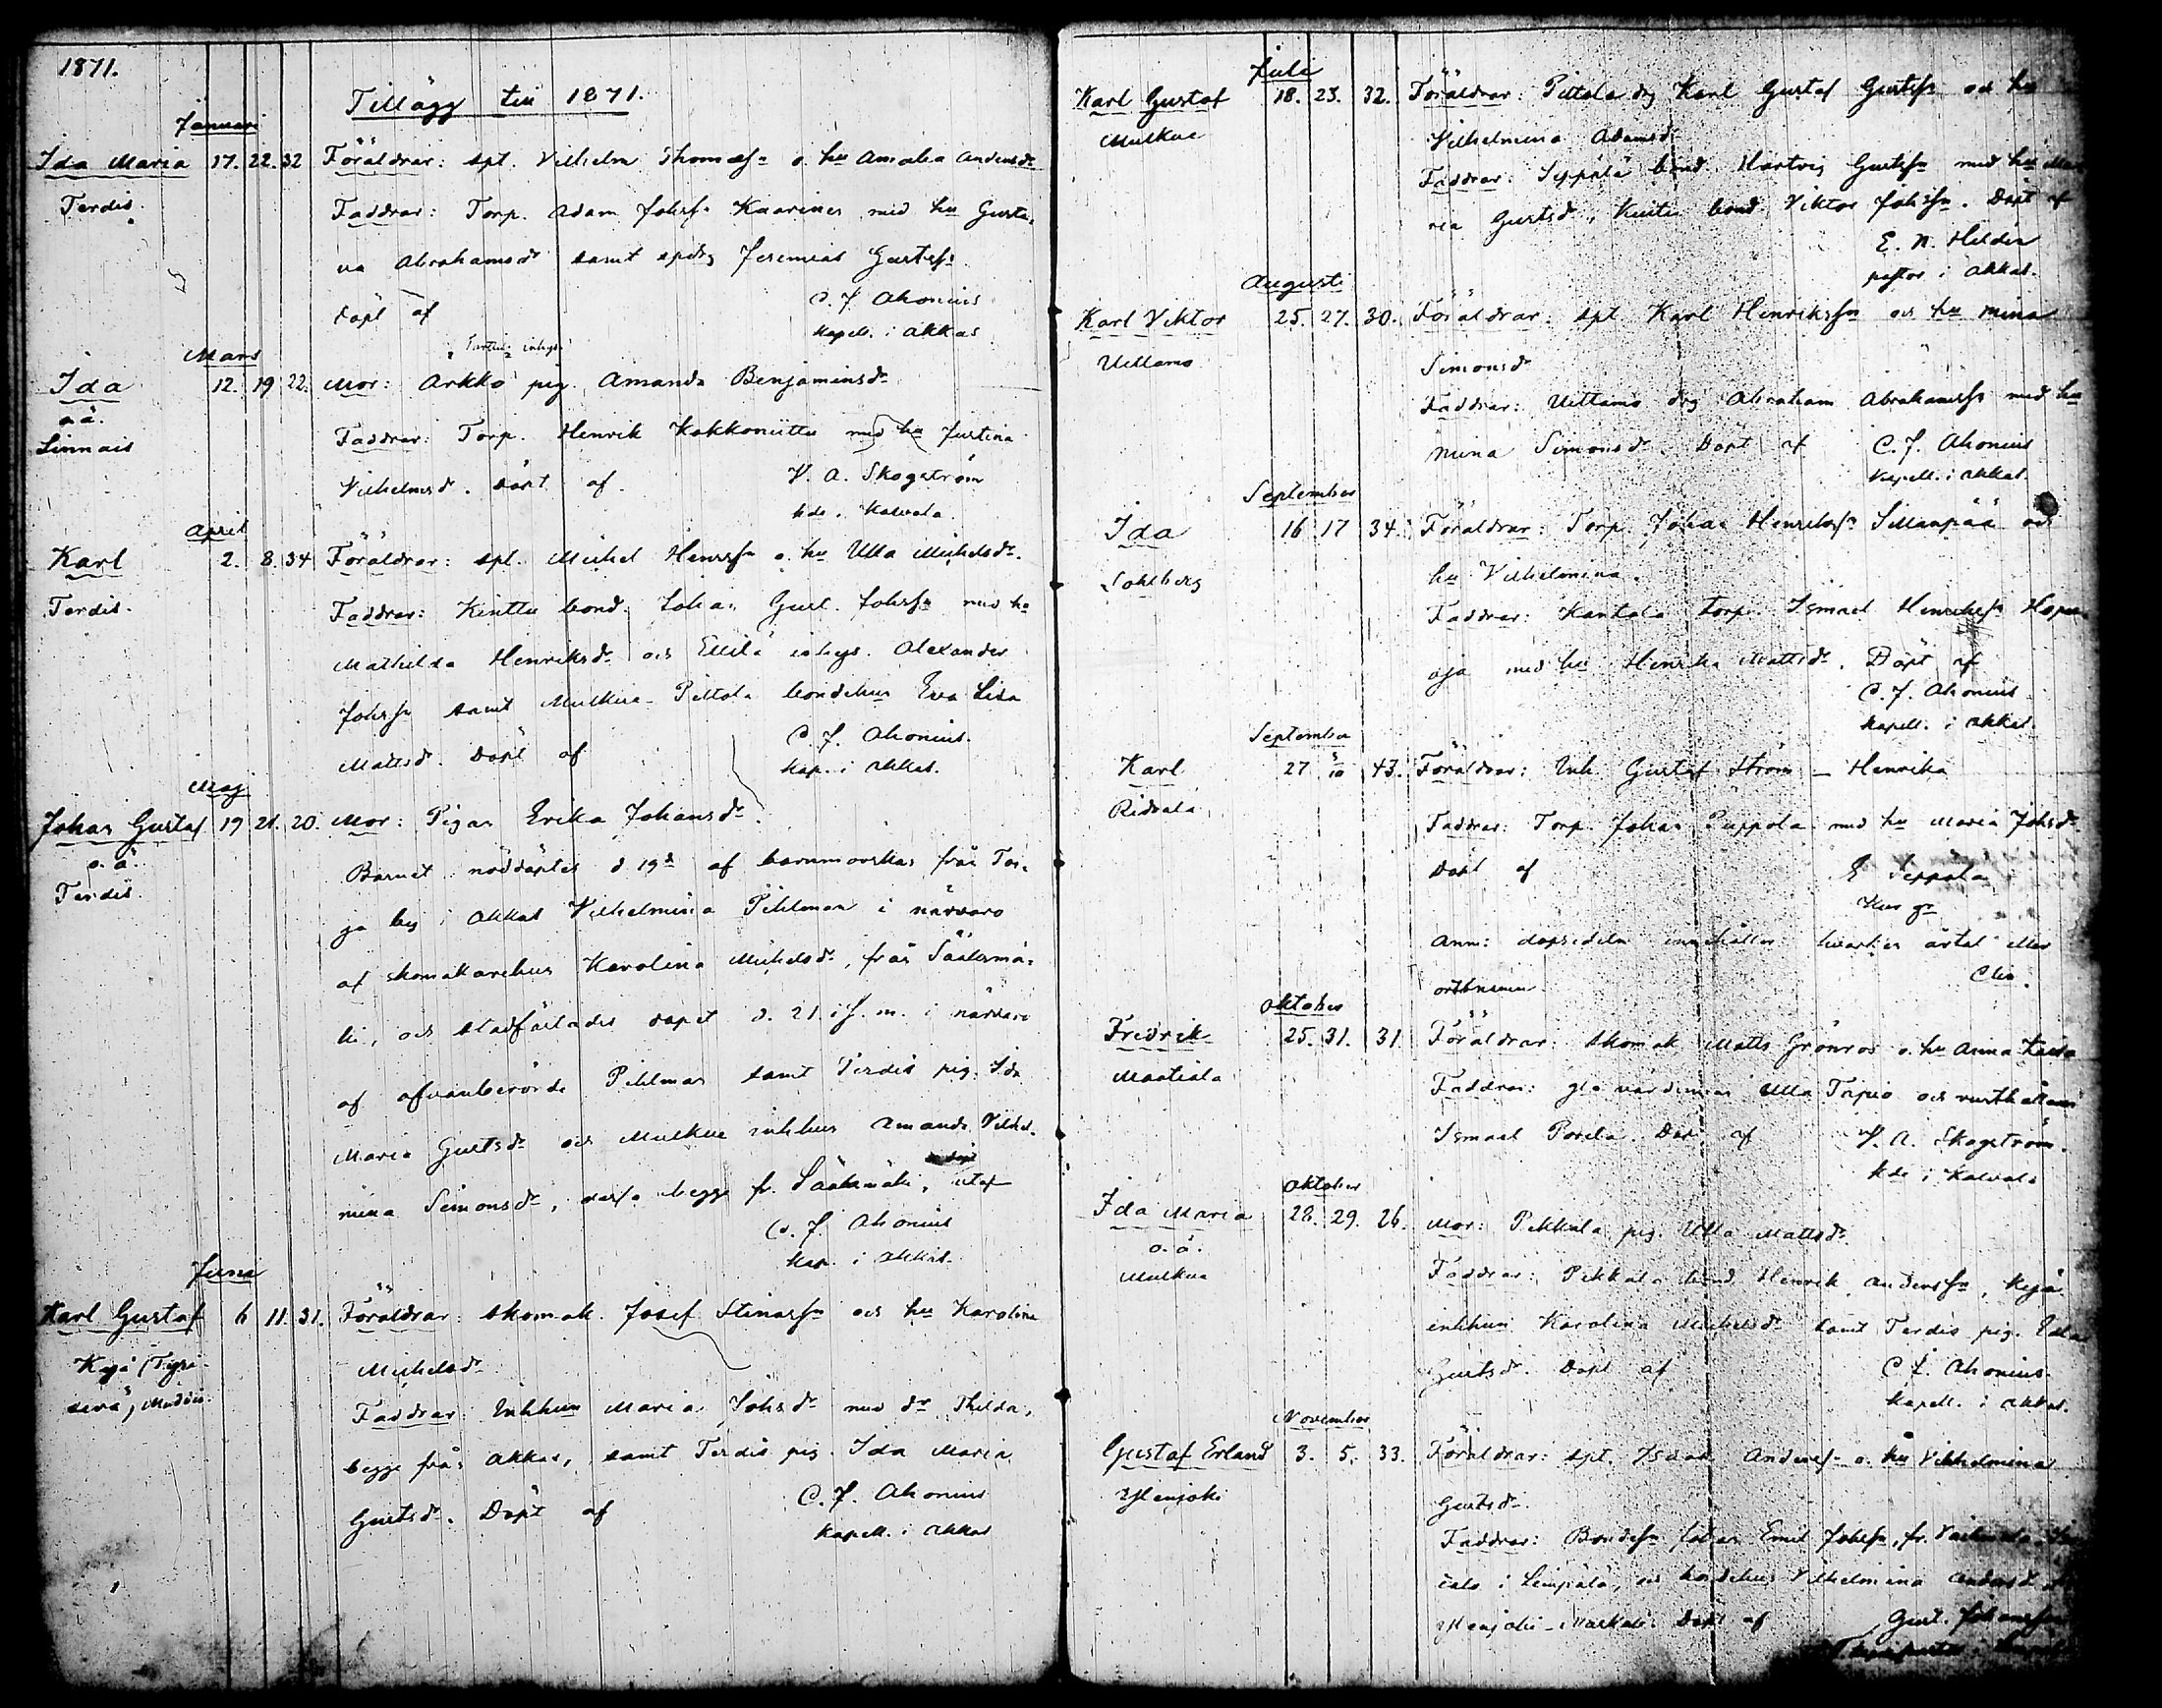 1871.
Tillägg till 1871.
Januari
Ida Maria 17. 22. 32 Föräldrar: spt. Vilhelm Thomassn o. hu Amalia Andersdr
Terdis. Faddrar: Torp. Adam Johssn Kaarinen med hu Gusta-
va Abrahamsdr samt spdrg Jeremias Gustafssn
Döpt af C. J. Ahonius
kapell. i Akkas
Mars
Ida 12. 19 22. Mor: Arkko pig. Amanda Benjaminsdr
o ä. Faddrar: Torp. Henrik Kokkoniittu med hu Justina
Linnais Vilhelmsd. Döpt af V. A. Skogström
kde i Kalvola
April
Karl 2. 8. 34 Föräldrar: spt. Michel Henrssn o. hu Ulla Michelsdr.
Terdis. Faddrar: Kinttu bond. Johan Gust. Johssn med hu
Mathilda Henriksdr och Ellilä inhys. Alexander
Johssn samt Mulkua-Pittola bondehus Eva Lisa
Mattsd. Döpt af C. J. Ahonius.
Kap. i Akkas.
Maj
Johan Gustaf 19 21. 20. Mor: Pigan Erika Johansdr.
o. ä. Barnet nöddöptes d 19d af barnmorskan från Toi-
Terdis. ja by i Akkas Vilhelmina Pihlman i närvaro
af skomakarehus Karolina Michelsdr, från Sääksmä-
ki, och stadfästades dopet d. 21. i s. m. i närvaro
af ofvanberörde Pihlman samt Terdis pig. Ida
Maria Gustsdr och Mulkua inhhus Amanda Vilhel-
mina Simonsdr, dessa begge fr. Sääksmäki, utaf
C. J. Ahonius
Kap. i Akkas.
Juni
Karl Gustaf 6 11. 31. Föräldrar: skomak. Josef Stinassn och hu Karolina
Kejä (Tyri- Michelsdr
Faddrar: Inhhun Maria Johsdr med dr Thilda,
begge från Akkas, samt Terdis pig. Ida Maria
Gustsdr. Döpt af C. J. Ahonius
kapell. i Akkas
Juli
Karl Gustaf 18. 23. 32. Föräldrar: Pittola drg Karl Gustaf Gustfsn och hu
Mulkua Vilhelmina Adamsdr
Faddrar: Seppälä bond. Hartvig Gustfsn med hu Ma-
ria Gustsd, bond. Viktor Johssn. Döpt af
E. N. Heldén
pastor i Akkas.
Augusti
Karl Viktor 25. 27. 30. Föräldrar: spt. Karl Henrikssn och hu Mina
Uittamo Simonsd
Faddrar: Uittamo drg Abraham Abrahamssn med hu
Mina Simonsdr. Döpt af C. J. Ahonius
Kapell. i Akkas.
September
Ida 16 17 34. Föräldrar: Torp. Johan Henrikssn Sillanpää och
Sohlberg hu Vilhelmina.
Faddrar: Kantola torp. Ismael Henrikssn
oja med hu Henrika Mattsdr. Döpt af
C. J. Ahonius
kapell. i Akkas.
September
Karl 27 5/10 43. Föräldrar: Inh. Gustaf Ström — Henrika
Ridvala Faddrar: Torp. Johan Puppola med hu Maria Johsdr
Döpt af E Seppälä
Anm: dopsedeln innehåller hvarken årtal eller
ortsnamn.
Oktober
Fredrik 25. 31. 31 Föräldrar: skomak. Matts Grönros o. hu Anna Kaisa
Maatiala Faddrar: gla värdinnan Ulla Tapio och rusthållare
Ismael Porela. Döpt af V. A. Skogström.
kde i Kalvola
Oktober
Ida Maria 28. 29. 26. Mor: Pekkala pig. Ulla Mattsdr.
o. ä. Faddrar: Pekkala bond. Henrik Anderssn, Kejä
Mulkua inhhun Karolina Michelsdr samt Terdis pig. Ida
Gustsdr. Döpt af C. J. Ahonius.
Kapell. i Akkas.
November
Gustaf Erland 3. 5. 33. Föräldrar: spt. Isaak Anderssn o. hu Vilhelmina
Ylenjoki Gustsdr.
Faddrar: Bondesn Johan Emil Johssn, fr.
i Lempälä, och bondehus Vilhelmina Andersd
Ylenjoki-Markala. Döpt af Gust. Johansson